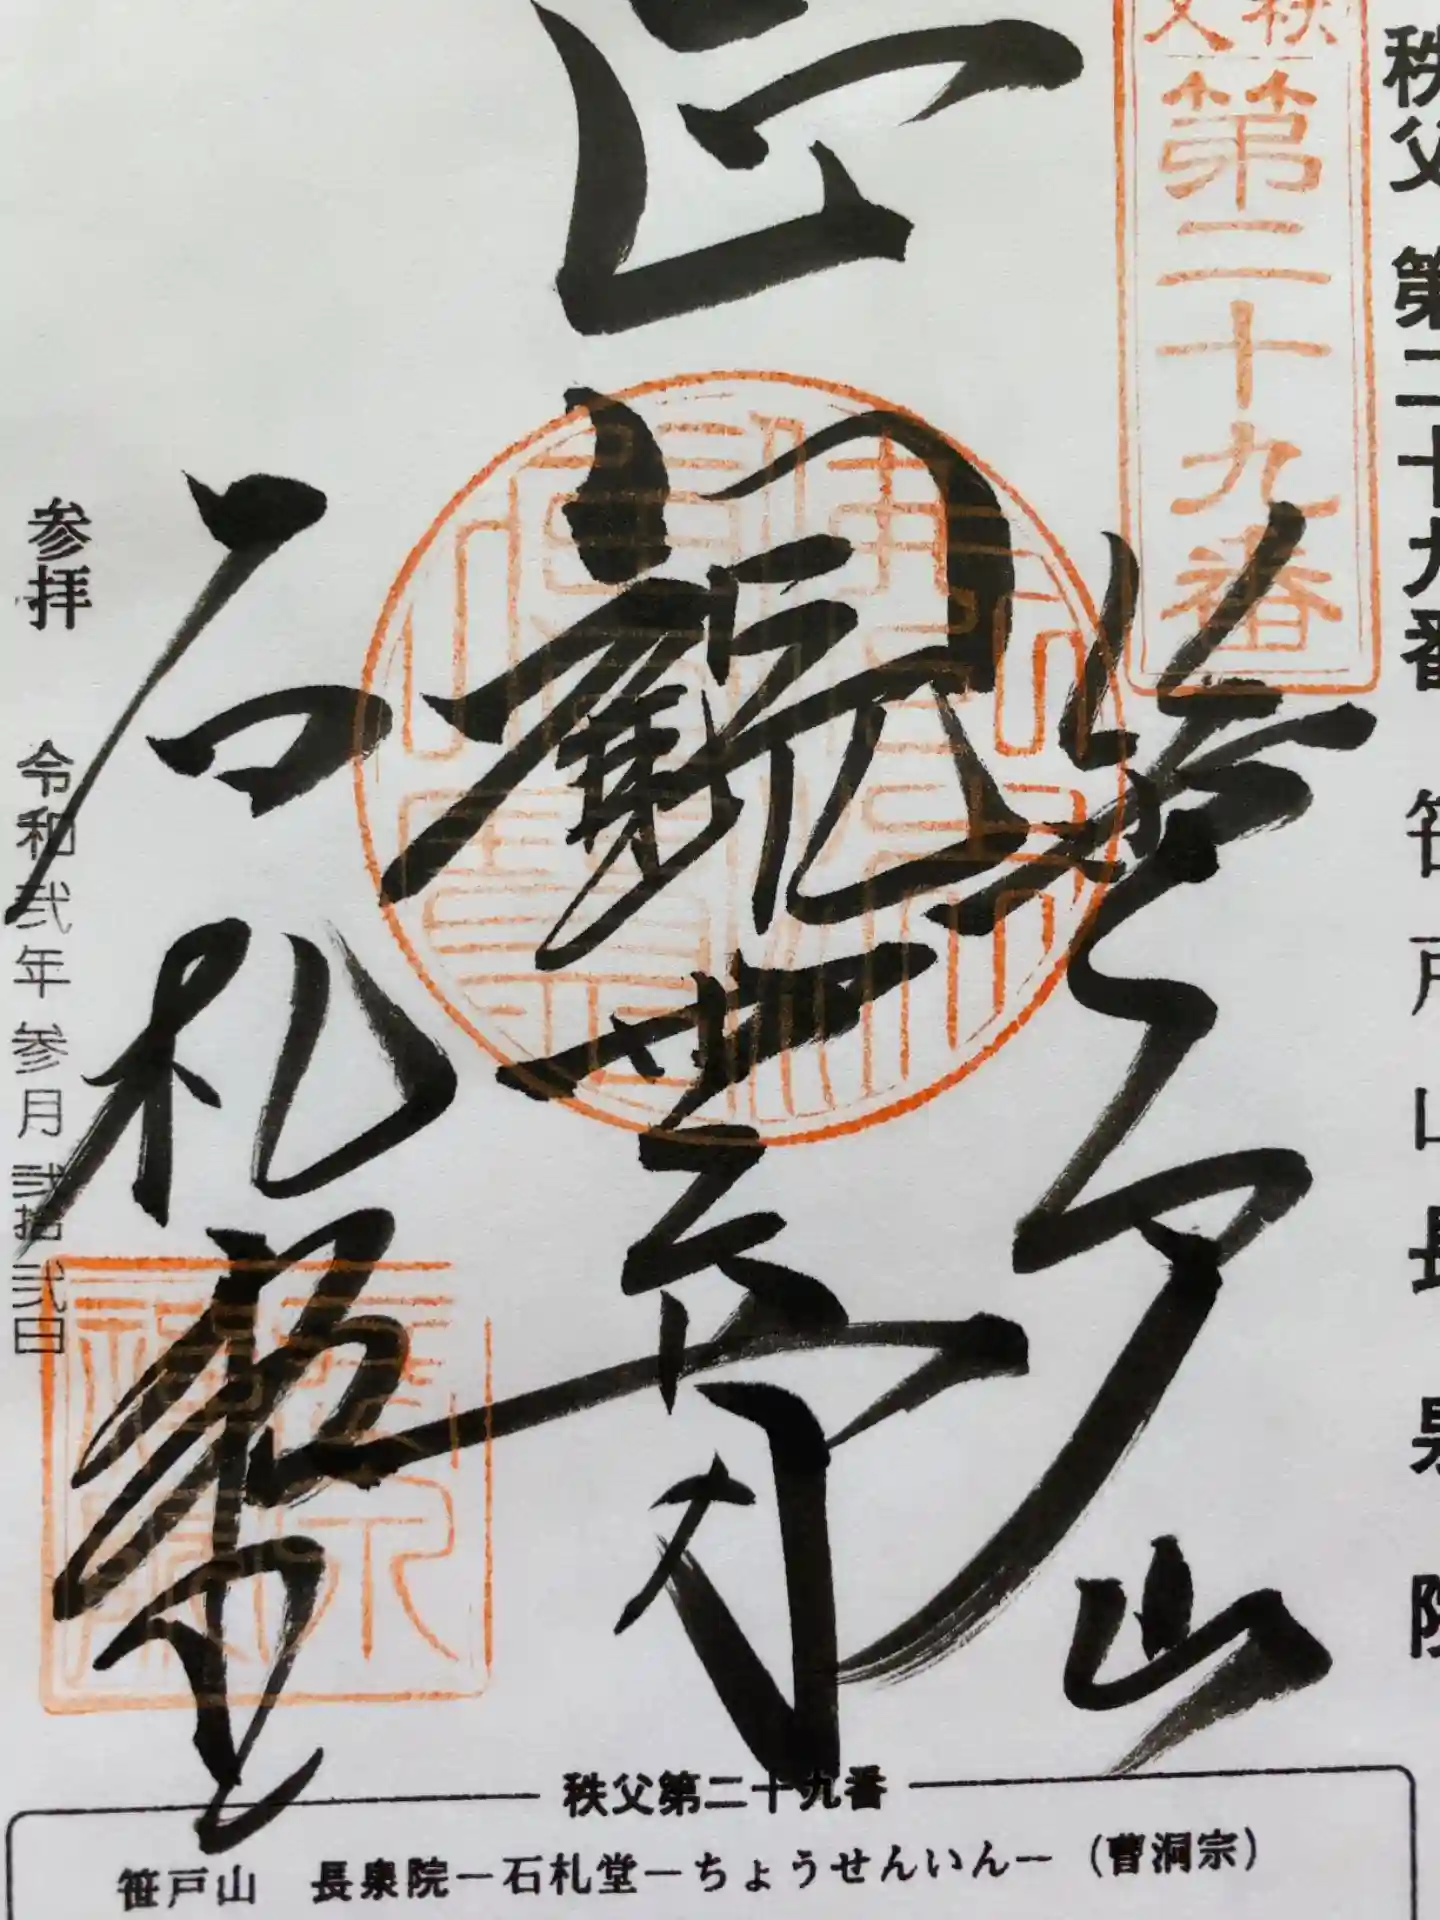 秩父 第二十九番 笹戸山 長泉院
秩父
第二十九番
笹戸山
正観世音
石札堂
参拝 令和弐年参月弐拾弐日
秩父第二十九番
笹戸山 長泉院－石札堂－ちょうせんいん－（曹洞宗）